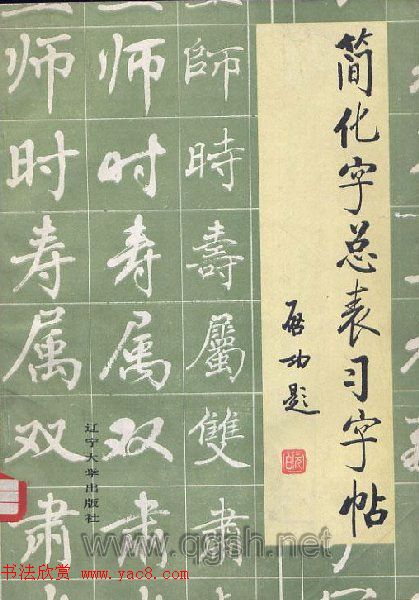 简化字总表习字帖
启功题
师 师 師
时 时 時
寿 寿 壽
属 属 屬
双 双 雙
肃 肃 肅
辽宁大学出版社
www.qgsh.net
书法欣赏 www.yac8.com